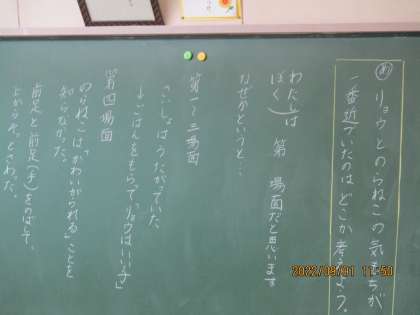 め リョウとのらねこの気もちが
一番近づいたのはどこか考えよう。
わたしは
ぼく
第 場面だと思います
なぜかというと…
第一～三場面
さいしょはうたがっていた
→ごはんをもらって「リョウはいい子」
第四場面
のらねこは「かわいがられる」ことを
知らなかった。
前足と前足(手)をのばして、
とさわった。
2022/09/01 11:50